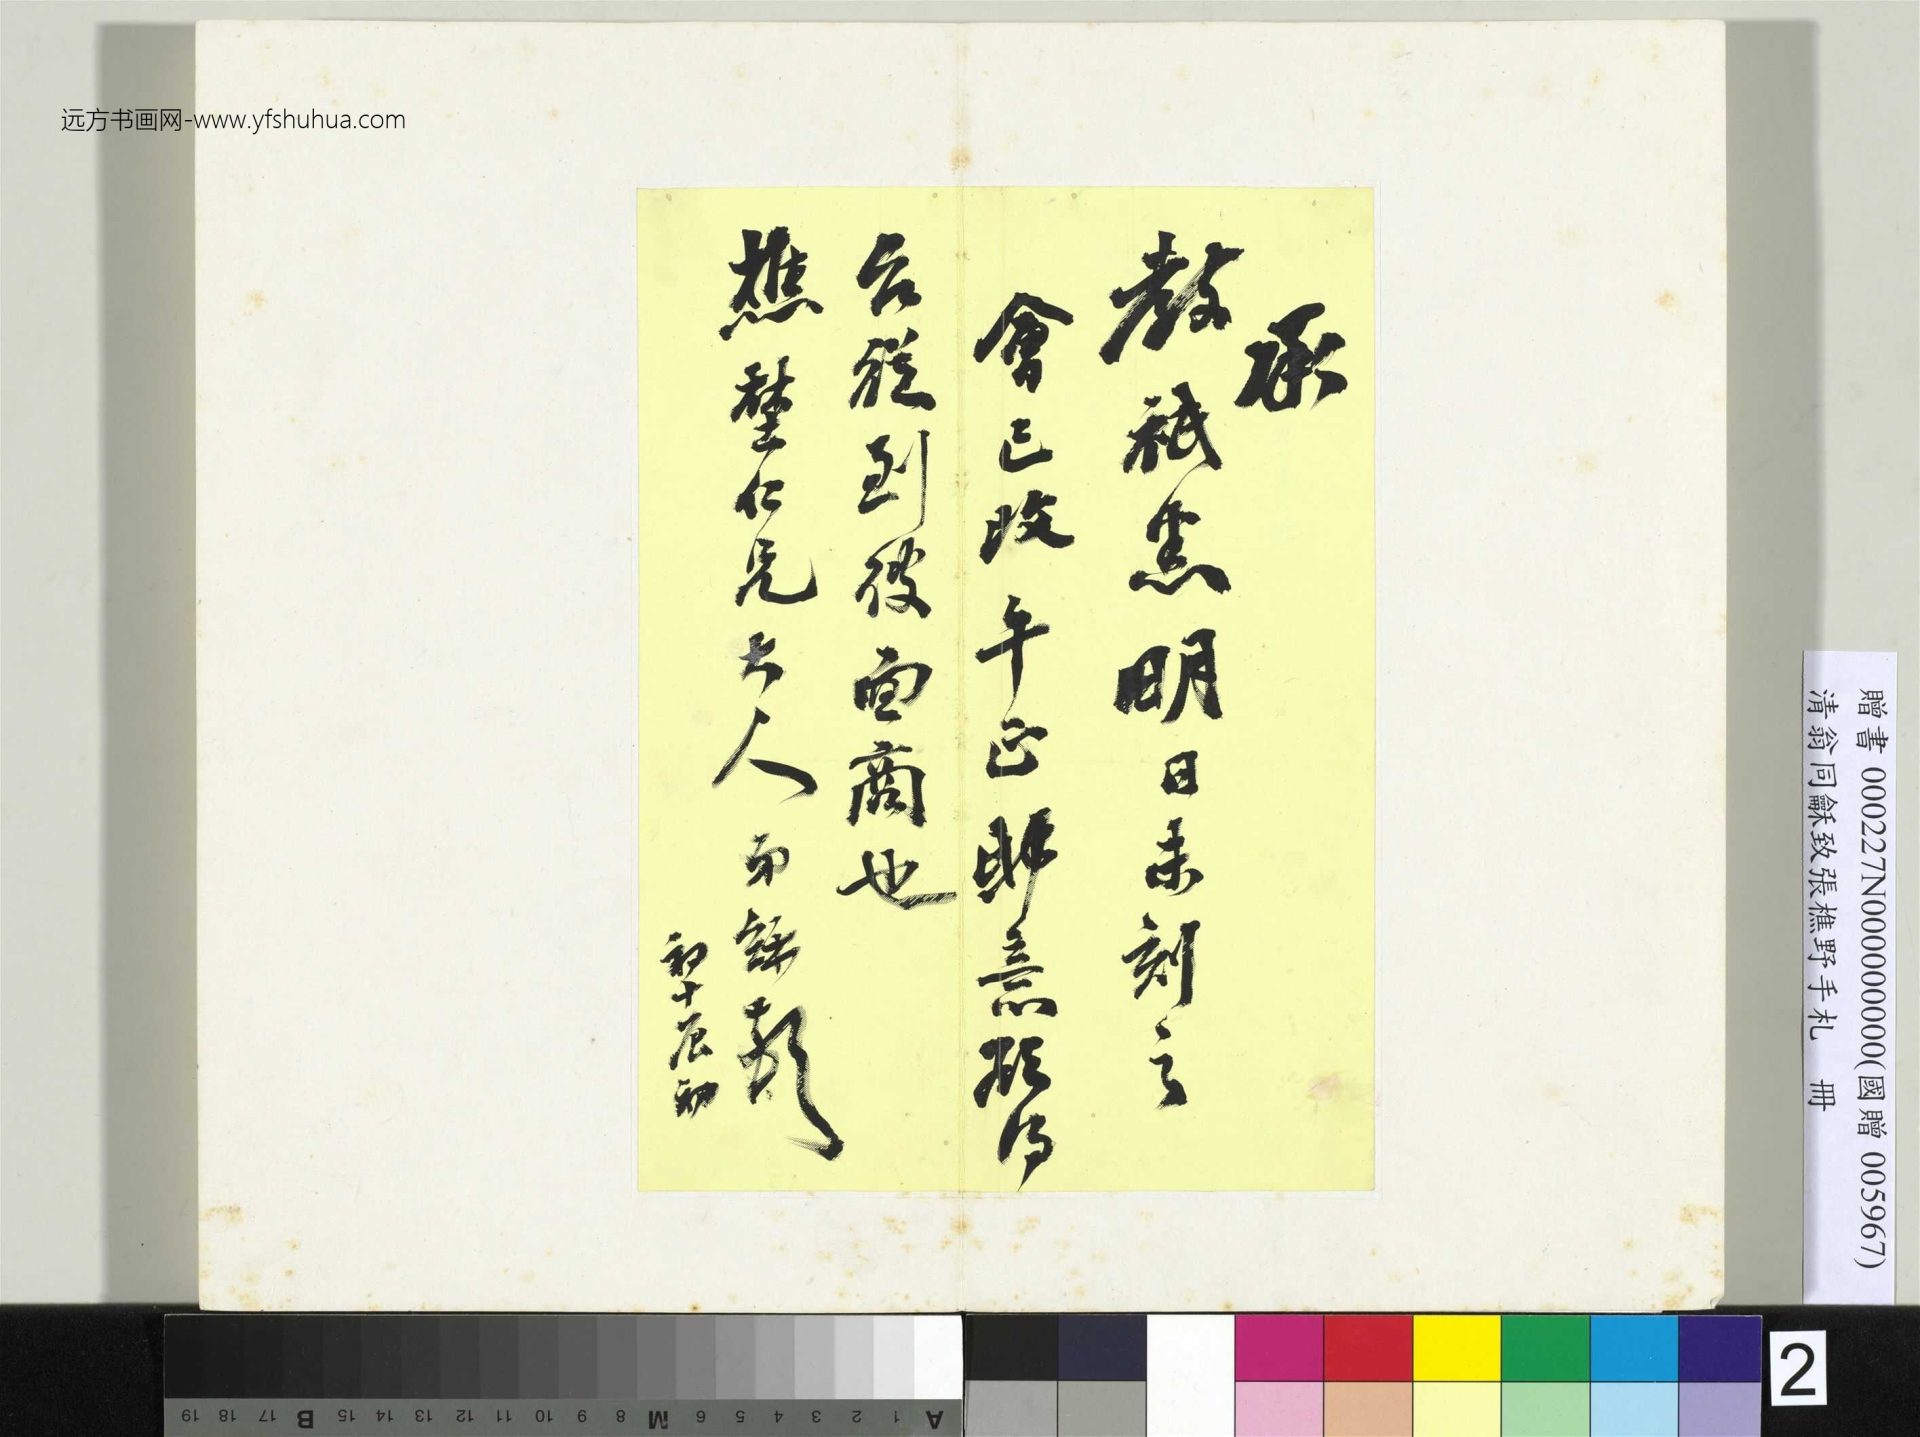 承
教祇悉明日未刻之
會已改午正郎意欲待
台從到後面商也
樵埜仁兄大人 弟龢頓
初十辰初
远方书画网-www.yfshuhua.com
贈書 000227N000000000(國贈 005967)
清翁同龢致張樵野手札 冊
2
A 1 2 3 4 5 6 M 8 9 10 11 12 13 14 15 B 17 18 19